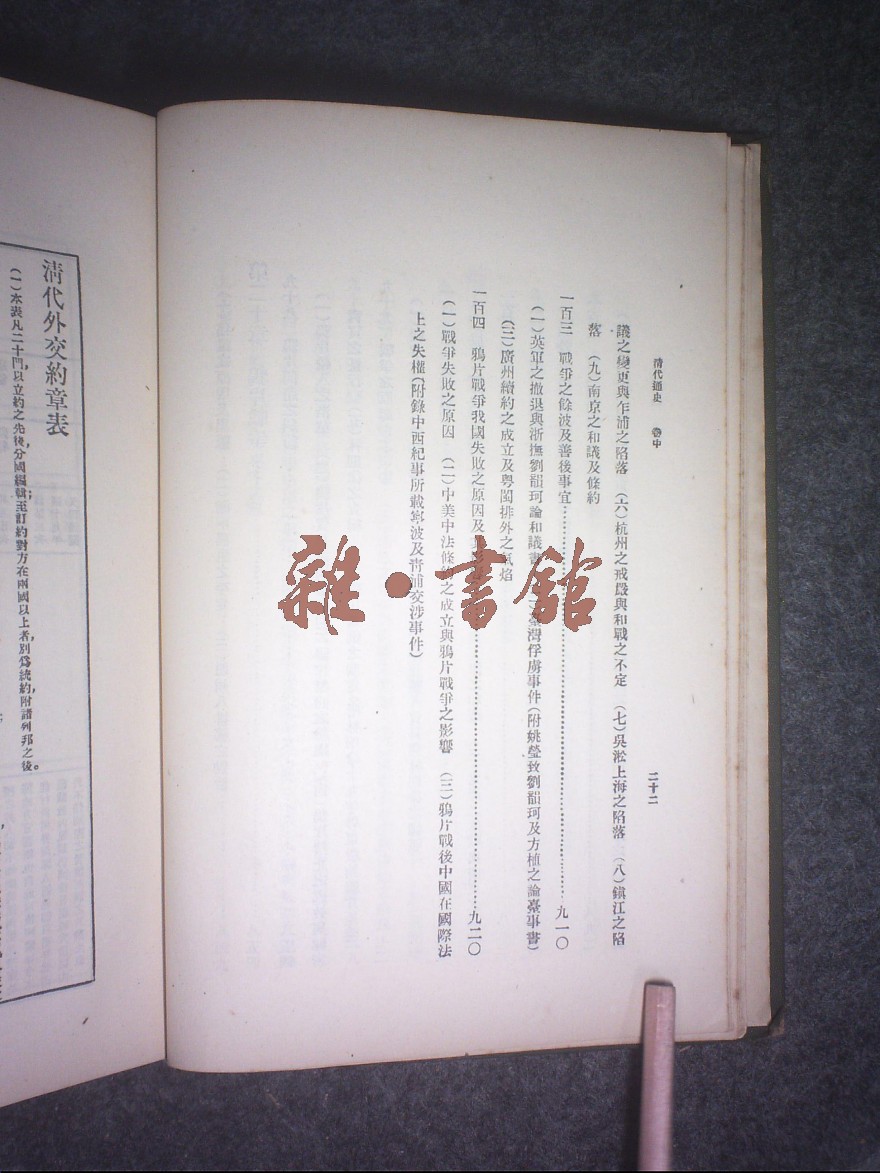 清代通史 卷中 二十二
議之變更與乍浦之陷落 (六)杭州之戒嚴與和戰之不定 (七)吳淞上海之陷落 (八)鎮江之陷
落 (九)南京之和議及條約
一百三 戰爭之餘波及善後事宜……九一〇
(一)英軍之撤退與浙撫劉韻珂論和議書 臺灣俘虜事件(附姚瑩致劉韻珂及方植之論臺事書)
(三)廣州續約之成立及粵閩排外之氣焰
一百四 鴉片戰爭我國失敗之原因及……九二〇
(一)戰爭失敗之原因 (二)中美中法條約之成立與鴉片戰爭之影響 (三)鴉片戰後中國在國際法
上之失權(附錄中西紀事所載寧波及青浦交涉事件)
清代外交約章表
(一)本表凡二十門,以立約之先後,分國編輯;至訂約對方在兩國以上者,別爲統約,附諸列邦之後。
雜·書館